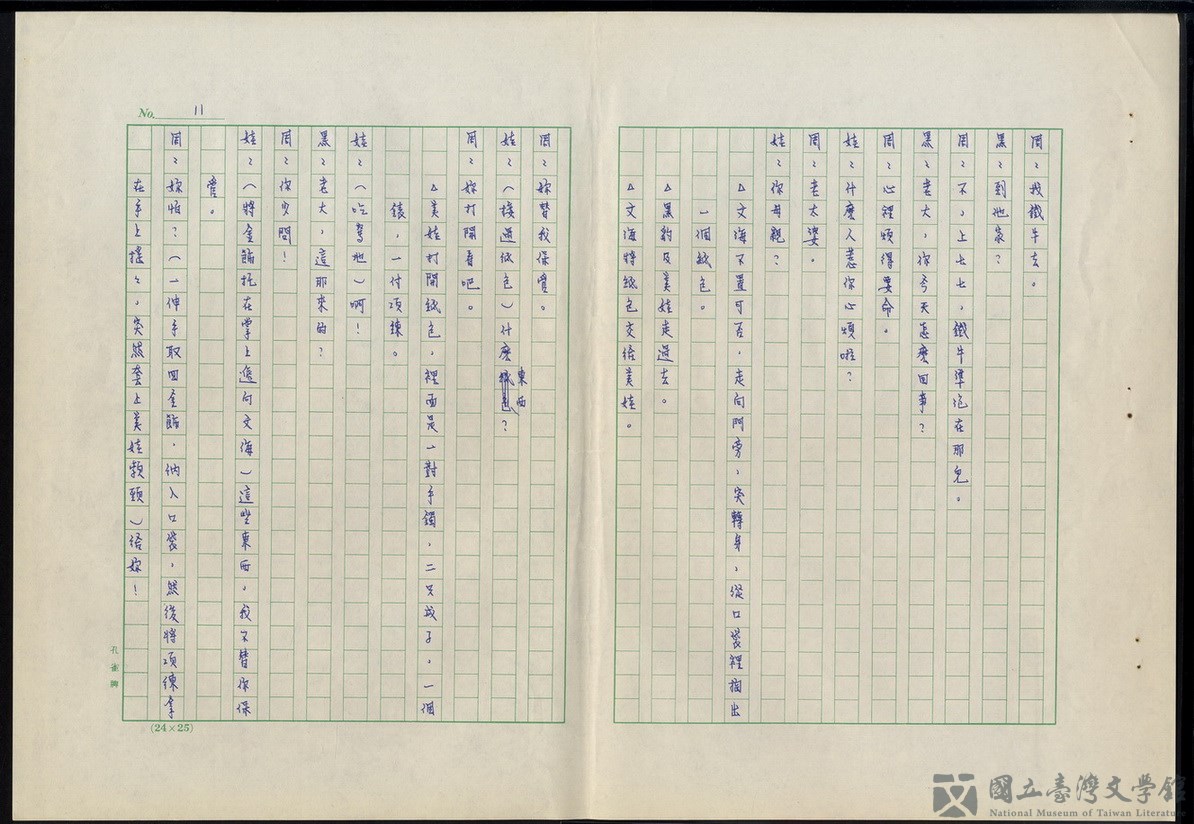 周：找鐵牛去。
黑：到他家？
周：不，上七七，鐵牛準泡在那兒。
黑：老大，你今天怎麼回事？
周：心裡煩得要命。
娃：什麼人惹你心煩啦？
周：老太婆。
娃：你母親？
△文海不置可否，走向門旁，突轉身，從口袋裡掏出
一個紙包。
△黑豹及美娃走過去。
△文海將紙包交給美娃。
No. 11
周：妳替我保管。
娃：（接過紙包）什麼東西？
周：妳打開看吧。
△美娃打開紙包，裡面是一對手鐲，二只戒子，一個
錶，一付項鍊。
娃：（吃驚地）啊！
黑：老大，這那來的？
周：你少問！
娃：（將金飾托在掌上遞向文海）這些東西，我不替你保
管。
周：妳怕？（一伸手取回金飾，納入口袋，然後將項鍊拿
在手上搖々，突然套上美娃頸）給妳！
孔雀牌
(24×25)
國立臺灣文學館
National Museum of Taiwan Literature